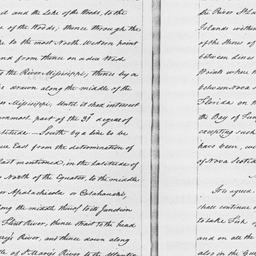 and the Lake of the Woods, to the
of the Woods, thence through the
to the most North Western point
and from thence on a due West
to the River Mississippi, thence by a
drawn along the middle of the
Mississippi, Until it shall intersect
part of the 31st degree of
South, by a line to be
Due East from the determination of
Last mentioned, in the Latitude of
North of the Equator, to the middle
Apalachicola or Catahouchi,
along the middle thereof to its Junction
Flint River, thence strait to the head
Mary's River, and thence down along
of St Mary's River to the Atlantic
the River St
Islands within
of the Shores of
between Lines
Points where
between Nova
Florida on
the Bay of Fun
excepting such
have been, w
of Nova Scotia
It is agreed
shall continue
to take Fish of
and on all the
also in the Gu